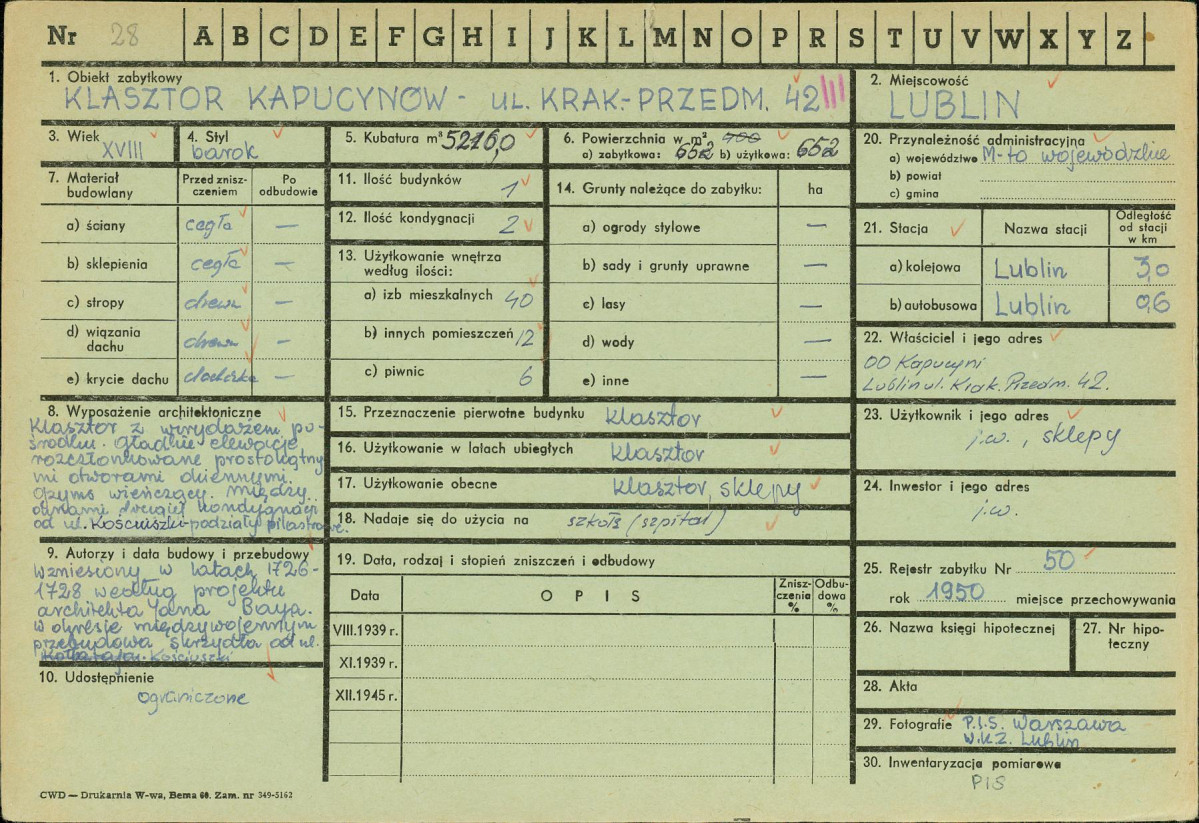 Nr 28 A B C D E F G H I J K L M N O P R S T U V W X Y Z
1. Obiekt zabytkowy
KLASZTOR KAPUCYNÓW - UL. KRAK.-PRZEDM. 42 III
2. Miejscowość
LUBLIN
3. Wiek
XVIII
4. Styl
barok
5. Kubatura m³ 5216,0
6. Powierzchnia w m²
a) zabytkowa: 652 b) użytkowa: 652
7. Materiał budowlany
Przed zniszczeniem
Po odbudowie
a) ściany cegła —
b) sklepienia cegła —
c) stropy drewn —
d) wiązania dachu drewn —
e) krycie dachu dachówka —
8. Wyposażenie architektoniczne
Klasztor z wirydażem po-
środku. Gładkie elewacje
rozczłonkowane prostokątny
mi otworami okiennymi.
Gzyms wieńczący. Między
oknami drugiej kondygnacji
od ul. Kościuszki-podziały pilastrowe.
9. Autorzy i data budowy i przebudowy
Wzniesiony w latach 1726-
1728 według projektu
architekta Jana Baya.
W okresie międzywojennym
przebudowa skrzydła od ul.
Kołłątaja. Kościuszki
10. Udostępnienie
ograniczone
11. Ilość budynków 1
12. Ilość kondygnacji 2
13. Użytkowanie wnętrza według ilości:
a) izb mieszkalnych 40
b) innych pomieszczeń 12
c) piwnic 6
14. Grunty należące do zabytku: ha
a) ogrody stylowe —
b) sady i grunty uprawne —
c) lasy —
d) wody —
e) inne —
15. Przeznaczenie pierwotne budynku klasztor
16. Użytkowanie w latach ubiegłych klasztor
17. Użytkowanie obecne klasztor, sklepy
18. Nadaje się do użycia na szkołę (szpital)
19. Data, rodzaj i stopień zniszczeń i odbudowy
Data OPIS Zniszczenia % Odbudowa %
VIII.1939 r.
XI.1939 r.
XII.1945 r.
20. Przynależność administracyjna
a) województwo M-to wojewódzkie
b) powiat
c) gmina
21. Stacja Nazwa stacji Odległość od stacji w km
a) kolejowa Lublin 3,0
b) autobusowa Lublin 0,6
22. Właściciel i jego adres
OO Kapucyni
Lublin ul. Krak. Przedm. 42.
23. Użytkownik i jego adres
j.w., sklepy
24. Inwestor i jego adres
j.w.
25. Rejestr zabytku Nr 50
rok 1950 miejsce przechowywania
26. Nazwa księgi hipotecznej
27. Nr hipoteczny
28. Akta
29. Fotografie P.I.S. Warszawa
W.K.Z. Lublin
30. Inwentaryzacja pomiarowa
PIS
CWD — Drukarnia W-wa, Bema 60. Zam. nr 349-5162